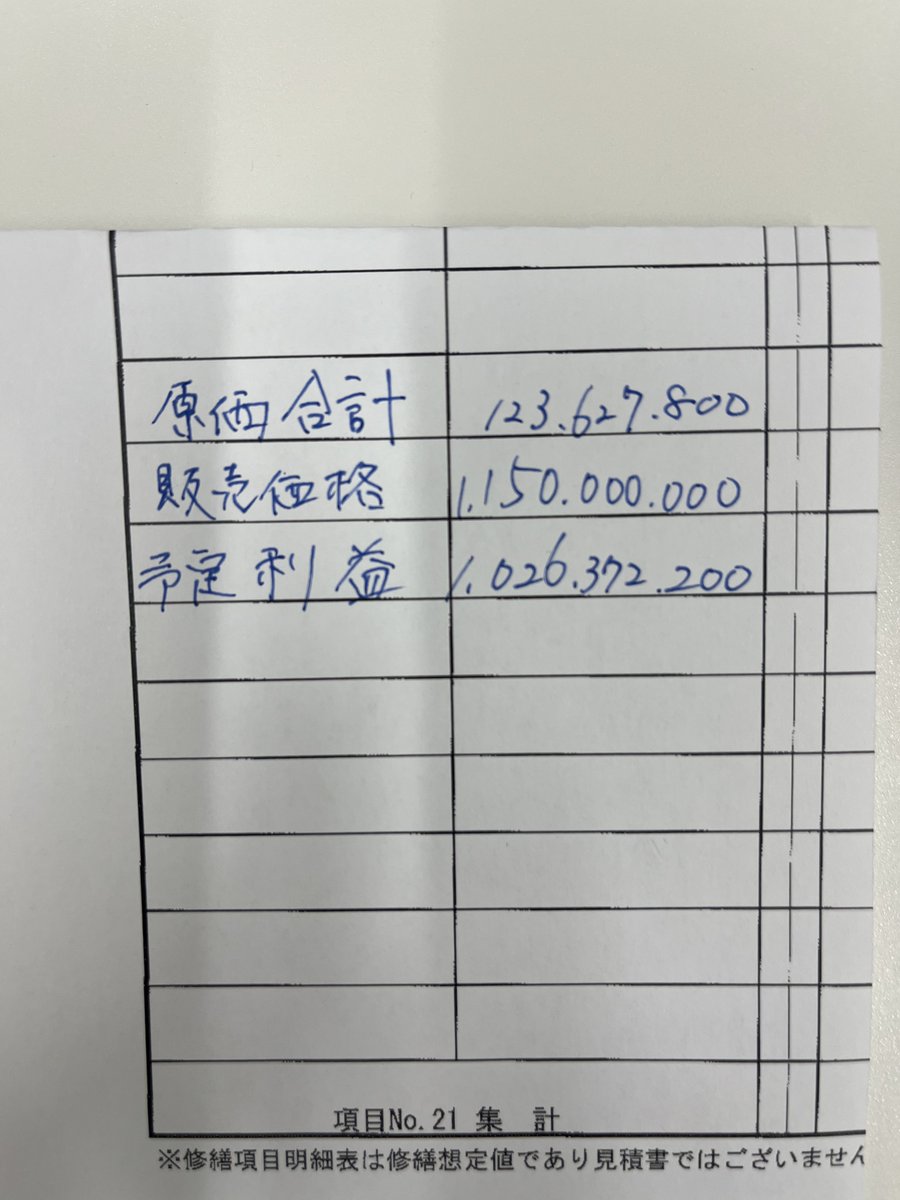 原価合計 123.627.800
販売価格 1.150.000.000
予定利益 1.026.372.200
項目No.21 集 計
※修繕項目明細表は修繕想定値であり見積書ではございません